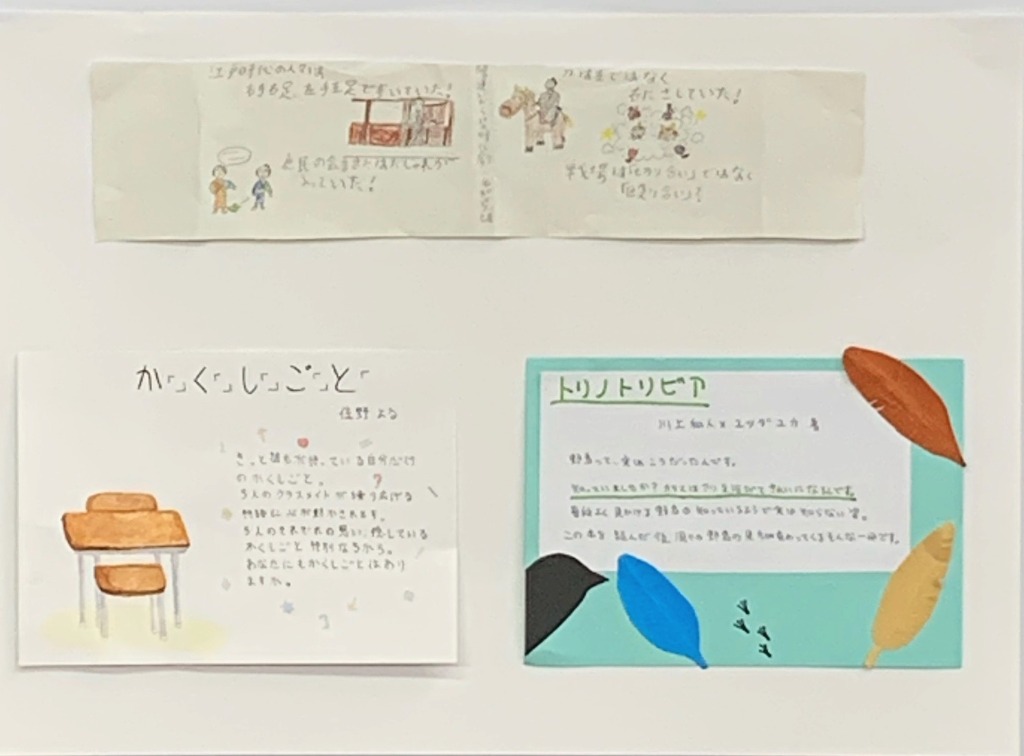 江戸時代の人々は
右手右足、左手左足で歩いていた！
庶民の
っていた！
ではなく
右にさしていた！
戦場は「切り合い」ではなく
「殴り合い」？
か「」く「」し「」ご「」と「
住野よる
きっと誰もが持っている自分だけ
のかくしごと。
5人のクラスメイトが繰り広げる
物語に心が動かされます。
5人のそれぞれの思い、隠している
かくしごと 特別なちから。
あなたにもかくしごとはあり
ますか。
トリノトリビア
川上和人×マツダユカ 著
野鳥って、実はこうだったんです。
知っていましたか？カラスはアリを浴びてきれいになるんです。
普段よく見かける野鳥の知っているようで実は知らない姿。
この本を読んだ後、周りの野鳥の見方が変わってくるそんな一冊です。